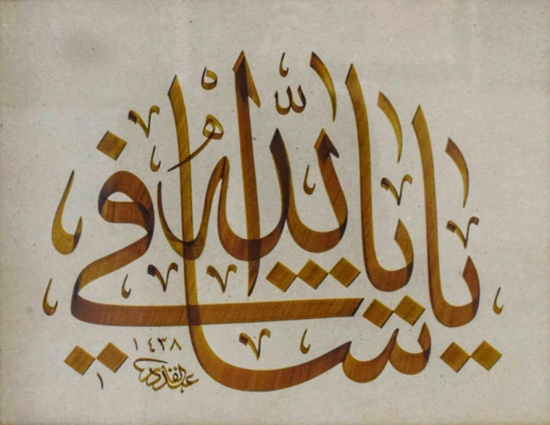 يا الله يا شافي
١٤٣٨
عبدالقادر